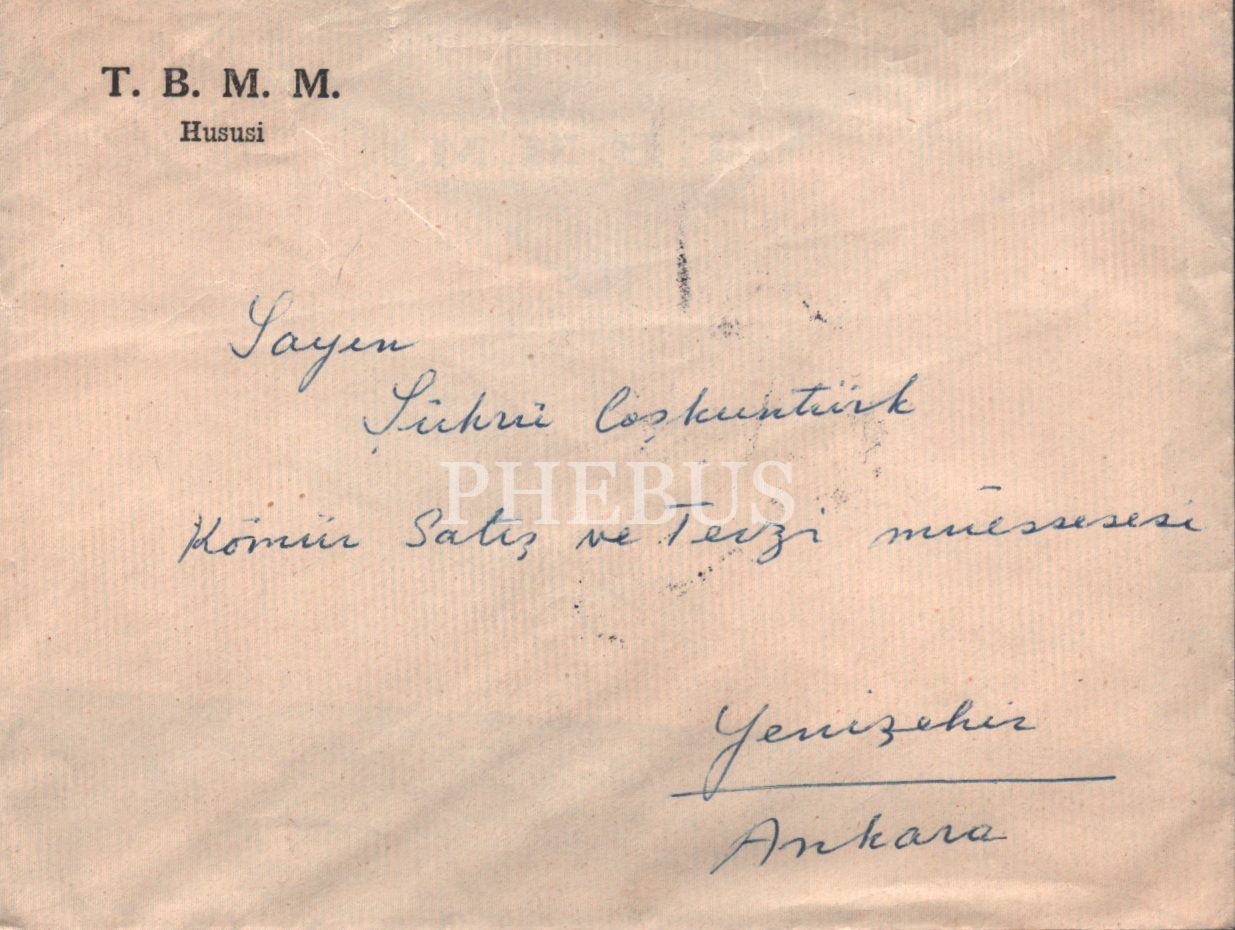 T. B. M. M.
Hususi
Sayın
Şükrü Coşkuntürk
PHEBUS
Kömür Satış ve Tevzi müessesesi
Yenişehir
Ankara